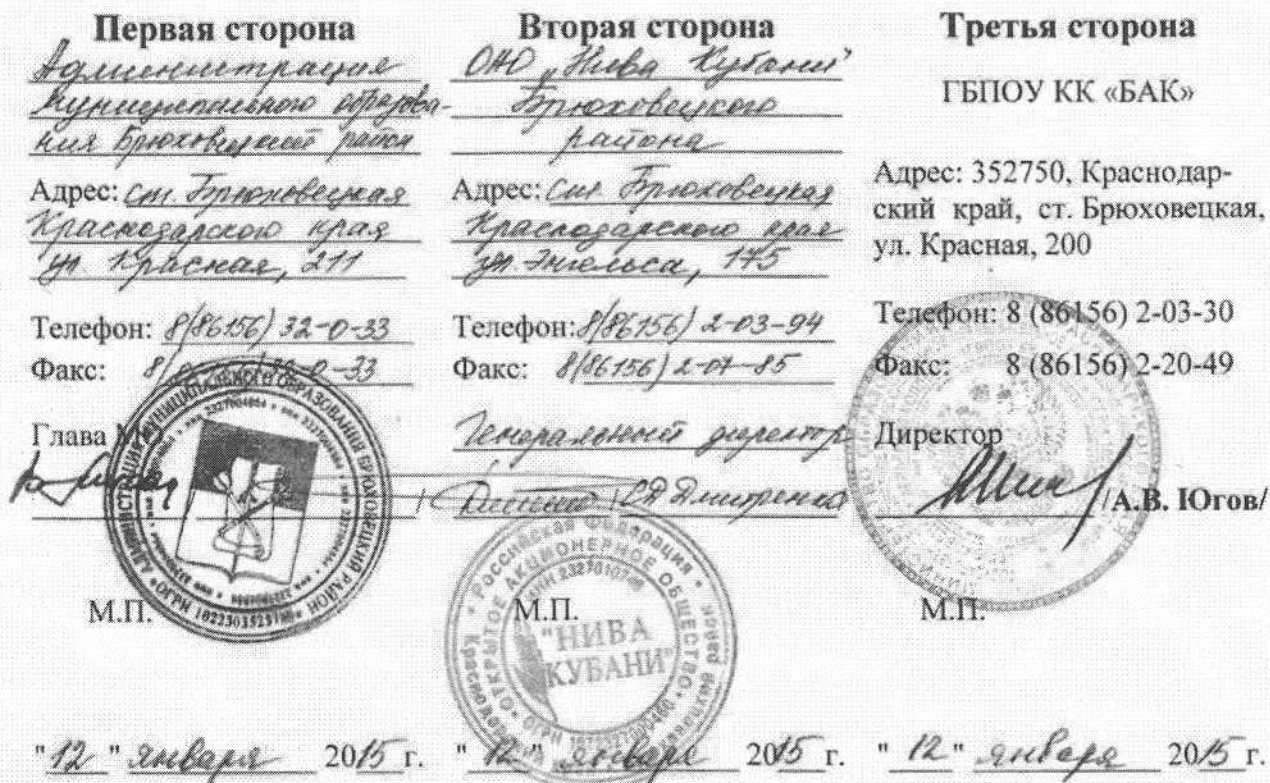 Первая сторона
Администрация
муниципального образова-
ния Брюховецкий район
Адрес: ст. Брюховецкая
Краснодарского края
ул. Красная, 211
Телефон: 8(86156) 32-0-33
Факс: 8( -0-33
Глава МО
М.П.
"12" января 2015 г.
АДМИНИСТРАЦИЯ МУНИЦИПАЛЬНОГО ОБРАЗОВАНИЯ БРЮХОВЕЦКИЙ РАЙОН
Вторая сторона
ОАО "Нива Кубани"
Брюховецкого
района
Адрес: ст. Брюховецкая
Краснодарского края
ул. Энгельса, 175
Телефон: 8(86156) 2-03-94
Факс: 8(86156) 2-07-85
Генеральный директор
/ С.Д. Дмитренко
М.П.
Российская Федерация
ОТКРЫТОЕ АКЦИОНЕРНОЕ ОБЩЕСТВО
"НИВА
КУБАНИ"
"12" января 2015 г.
Третья сторона
ГБПОУ КК «БАК»
Адрес: 352750, Краснодар-
ский край, ст. Брюховецкая,
ул. Красная, 200
Телефон: 8 (86156) 2-03-30
Факс: 8 (86156) 2-20-49
Директор
/А.В. Югов/
М.П.
"12" января 2015 г.